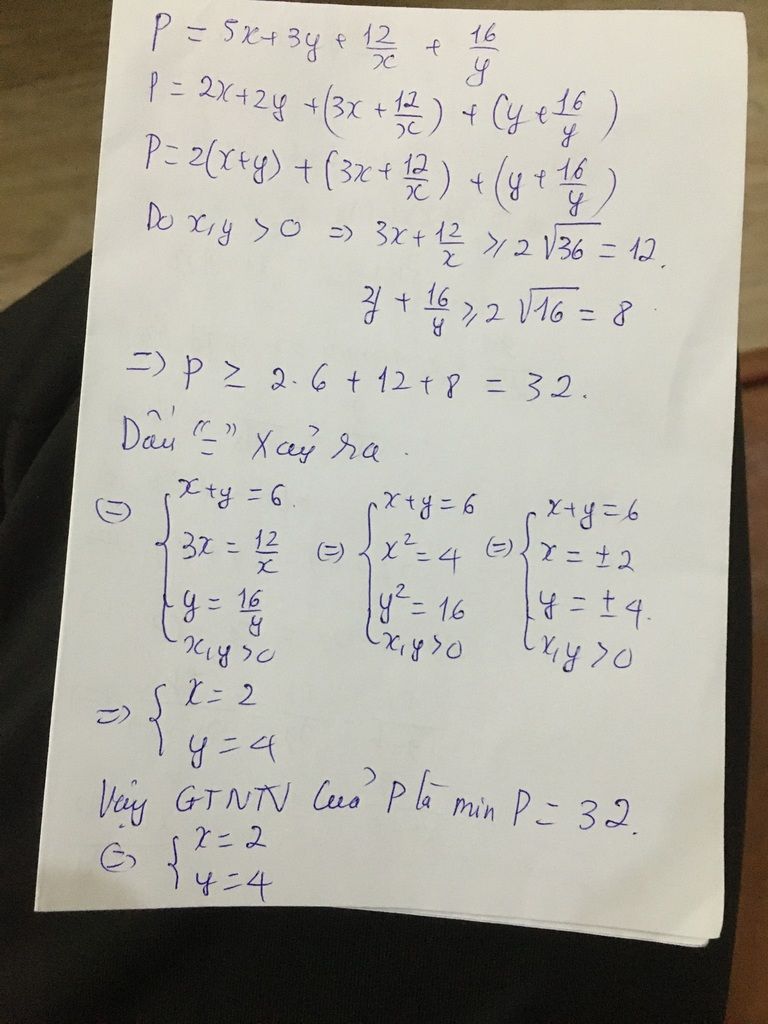 P = 5x + 3y + 12/x + 16/y
P = 2x + 2y + (3x + 12/x) + (y + 16/y)
P = 2(x+y) + (3x + 12/x) + (y + 16/y)
Do x,y > 0 => 3x + 12/x ≥ 2√36 = 12.
y + 16/y ≥ 2√16 = 8
=> P ≥ 2.6 + 12 + 8 = 32.
Dấu "=" xảy ra.
(=) { x+y = 6 ; 3x = 12/x ; y = 16/y ; x,y > 0 (=) { x+y = 6 ; x² = 4 ; y² = 16 ; x,y > 0 (=) { x+y = 6 ; x = ±2 ; y = ±4. ; x,y > 0
=> { x = 2 ; y = 4
Vậy GTNN của P là min P = 32.
(=) { x = 2 ; y = 4